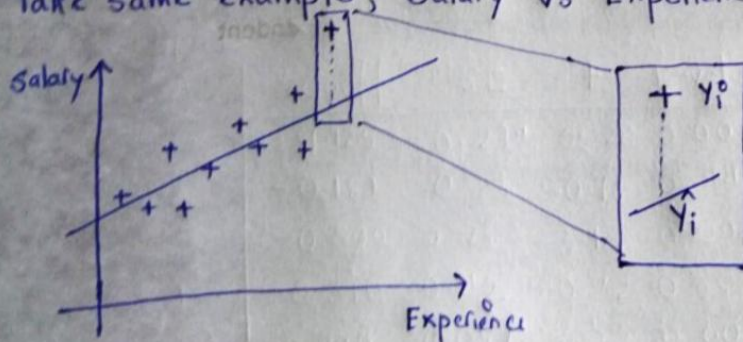 Take same example, Salary vs Experience
Salary
yi
ŷi
Experience